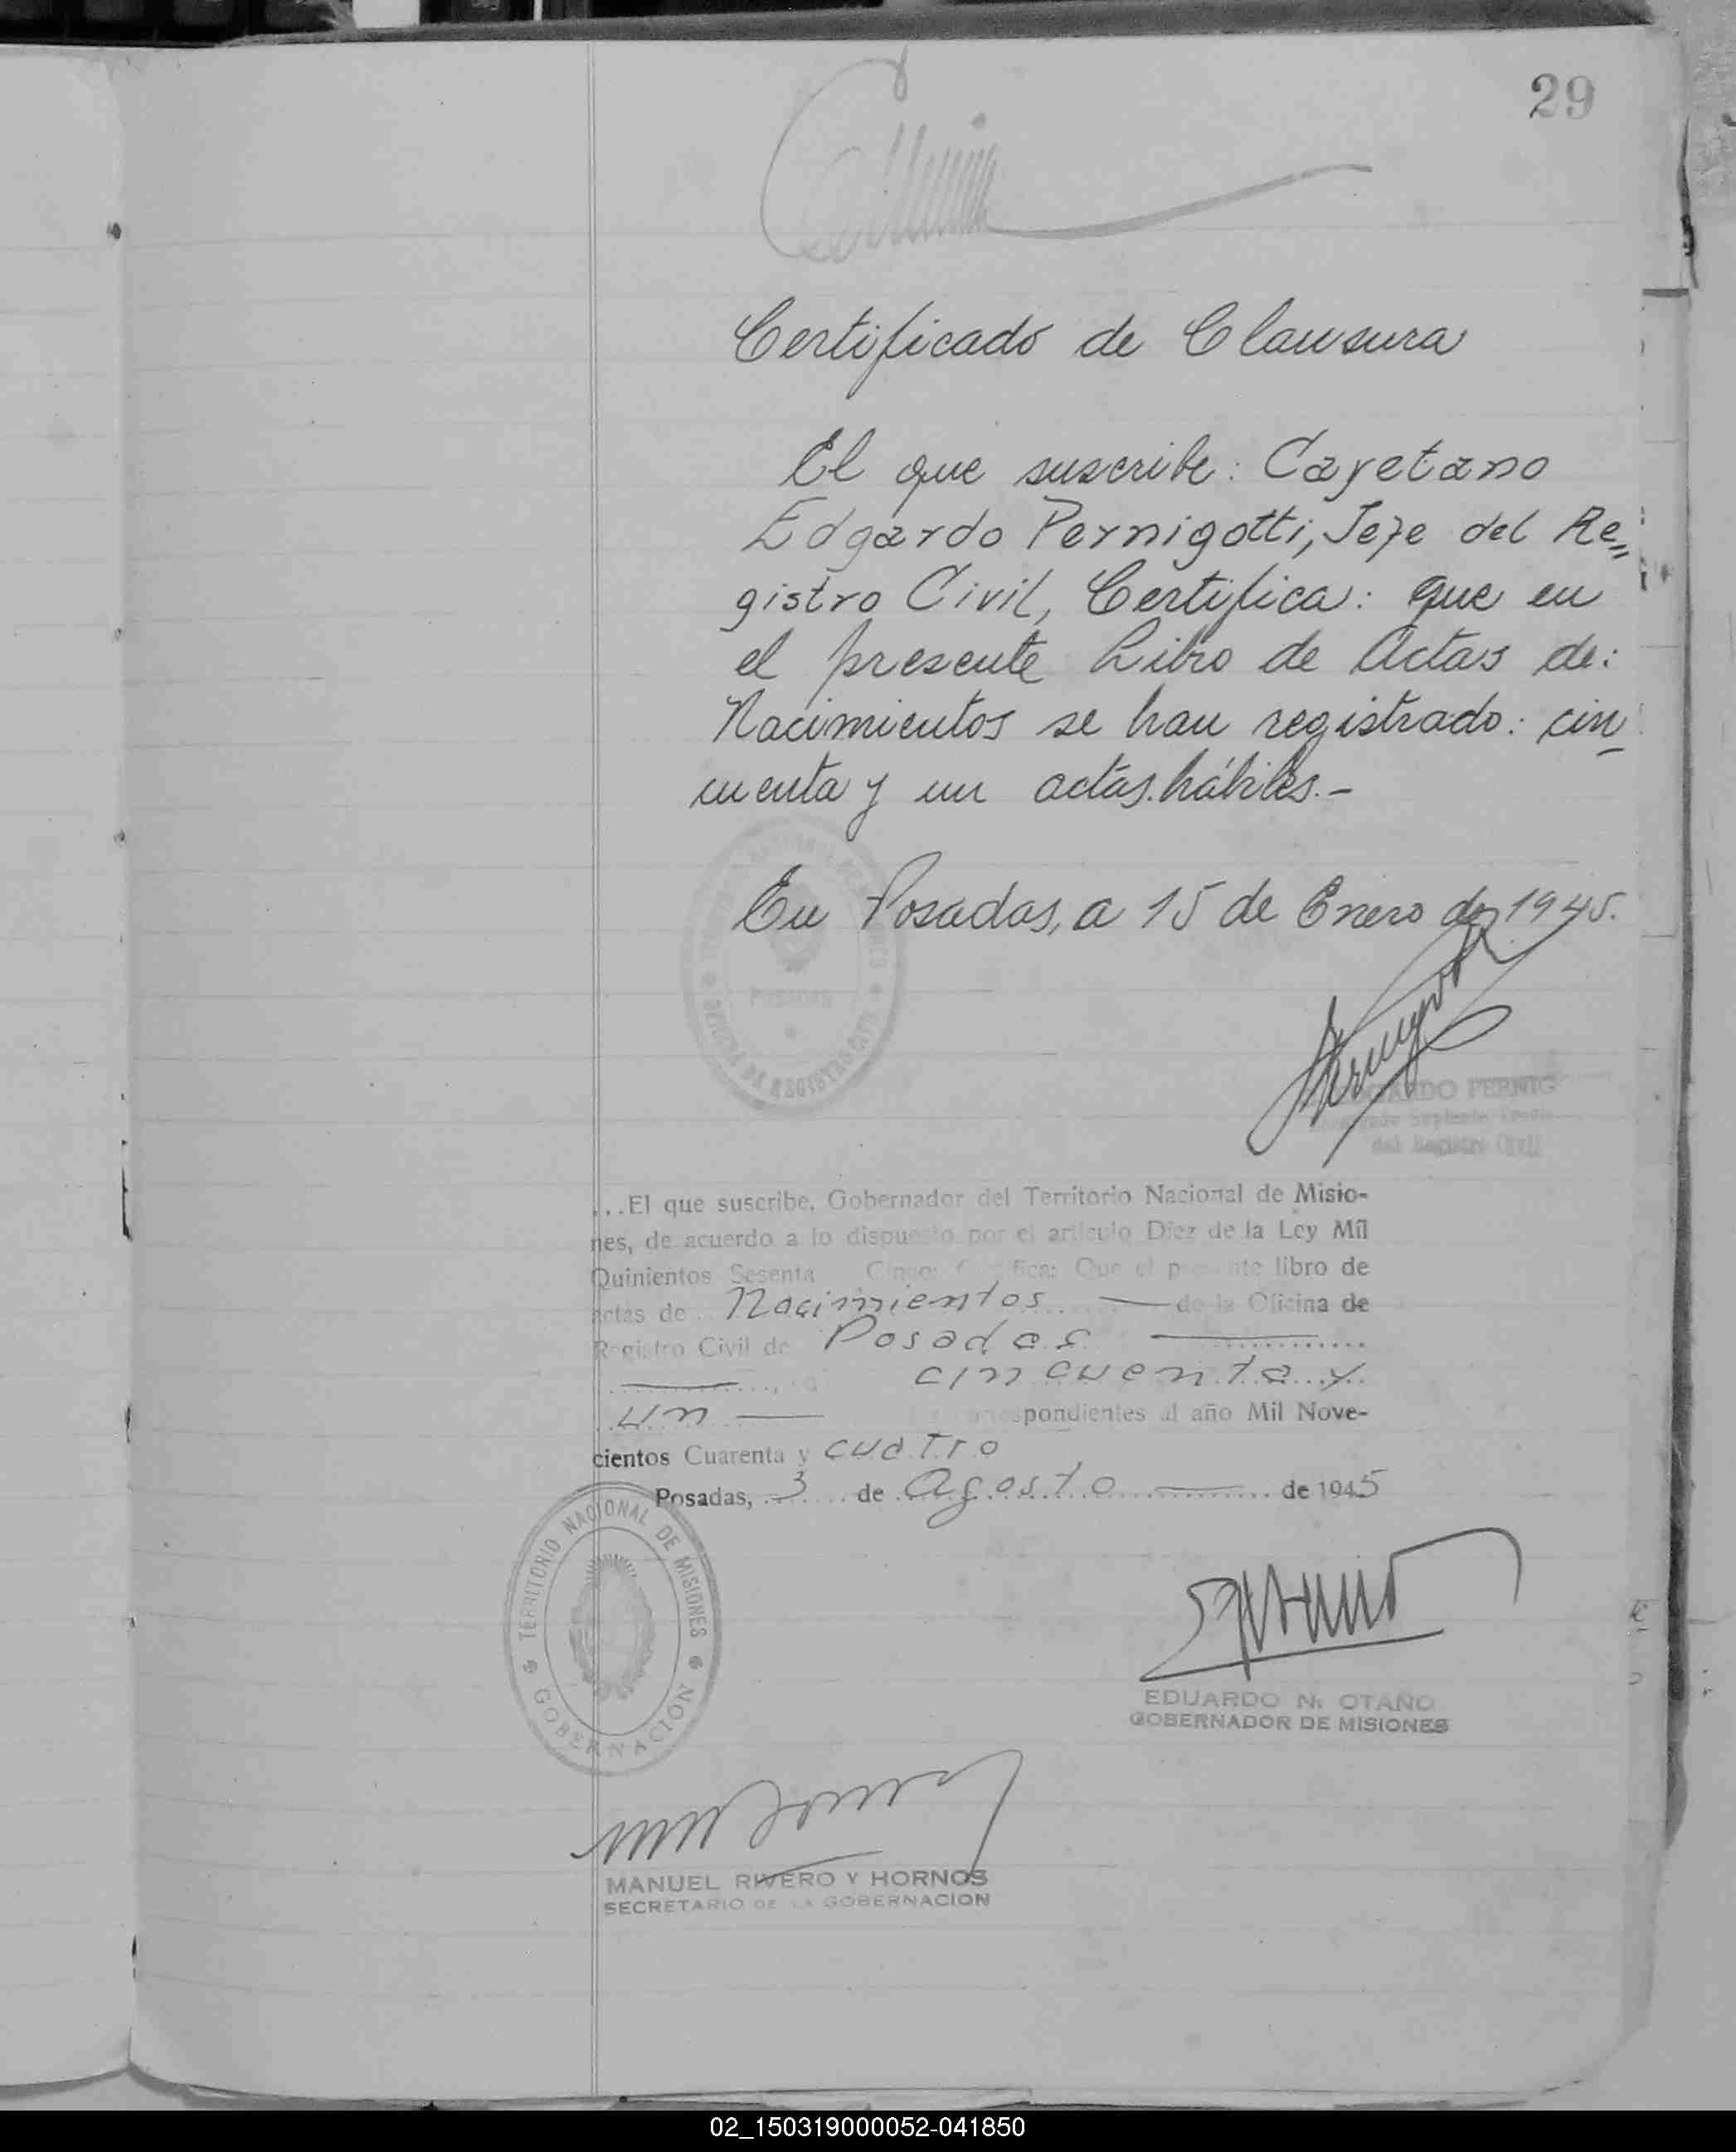 29
Certificado de Clausura
El que suscribe: Cayetano
Edgardo Pernigotti, Jefe del Re=
gistro Civil, Certifica: que en
el presente Libro de Actas de:
Nacimientos se han registrado: cin_
cuenta y un actas hábiles.-
En Posadas, a 15 de Enero de 1945.
POSADAS
EDGARDO PERNIG
del Registro Civil
...El que suscribe, Gobernador del Territorio Nacional de Misio-
nes, de acuerdo a lo dispuesto por el artículo Diez de la Ley Mil
Quinientos Sesenta Cinco: Certifica: Que el presente libro de
actas de Nacimientos — de la Oficina de
Registro Civil de Posadas —
cincuenta y
un — correspondientes al año Mil Nove-
cientos Cuarenta y cuatro
Posadas, 3 de Agosto — de 1945
TERRITORIO NACIONAL DE MISIONES
GOBERNACION
EDUARDO N. OTAÑO
GOBERNADOR DE MISIONES
MANUEL RIVERO Y HORNOS
SECRETARIO DE LA GOBERNACION
02_150319000052-041850